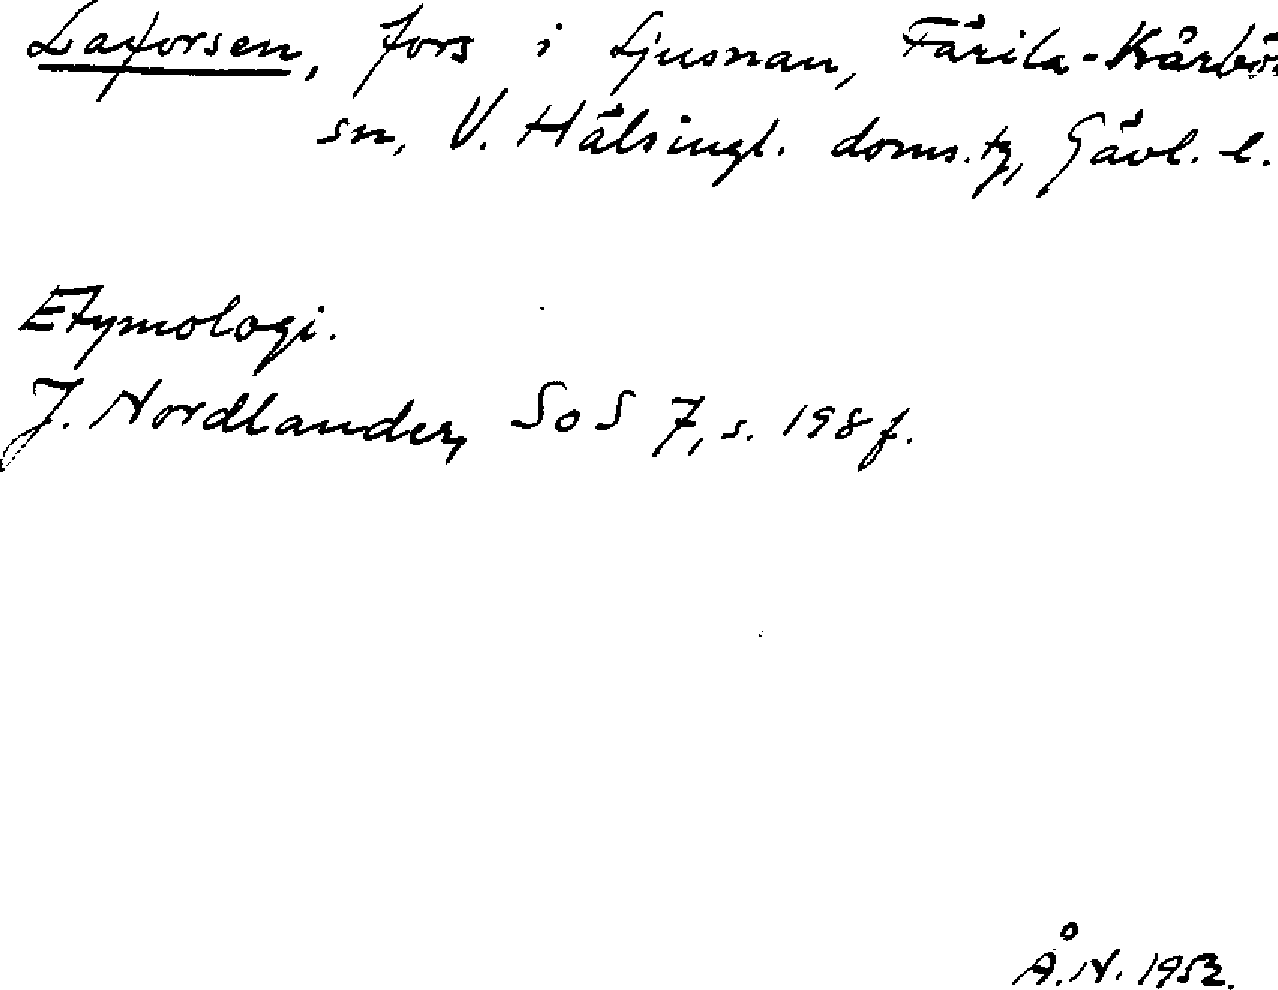 Laforsen, fors i Ljusnan, Färila-Kårbö
sn, V. Hälsingl. doms.tg, Gävl. l.
Etymologi.
J. Nordlander, SoS 7, s. 198 f.
Å.N. 1952.